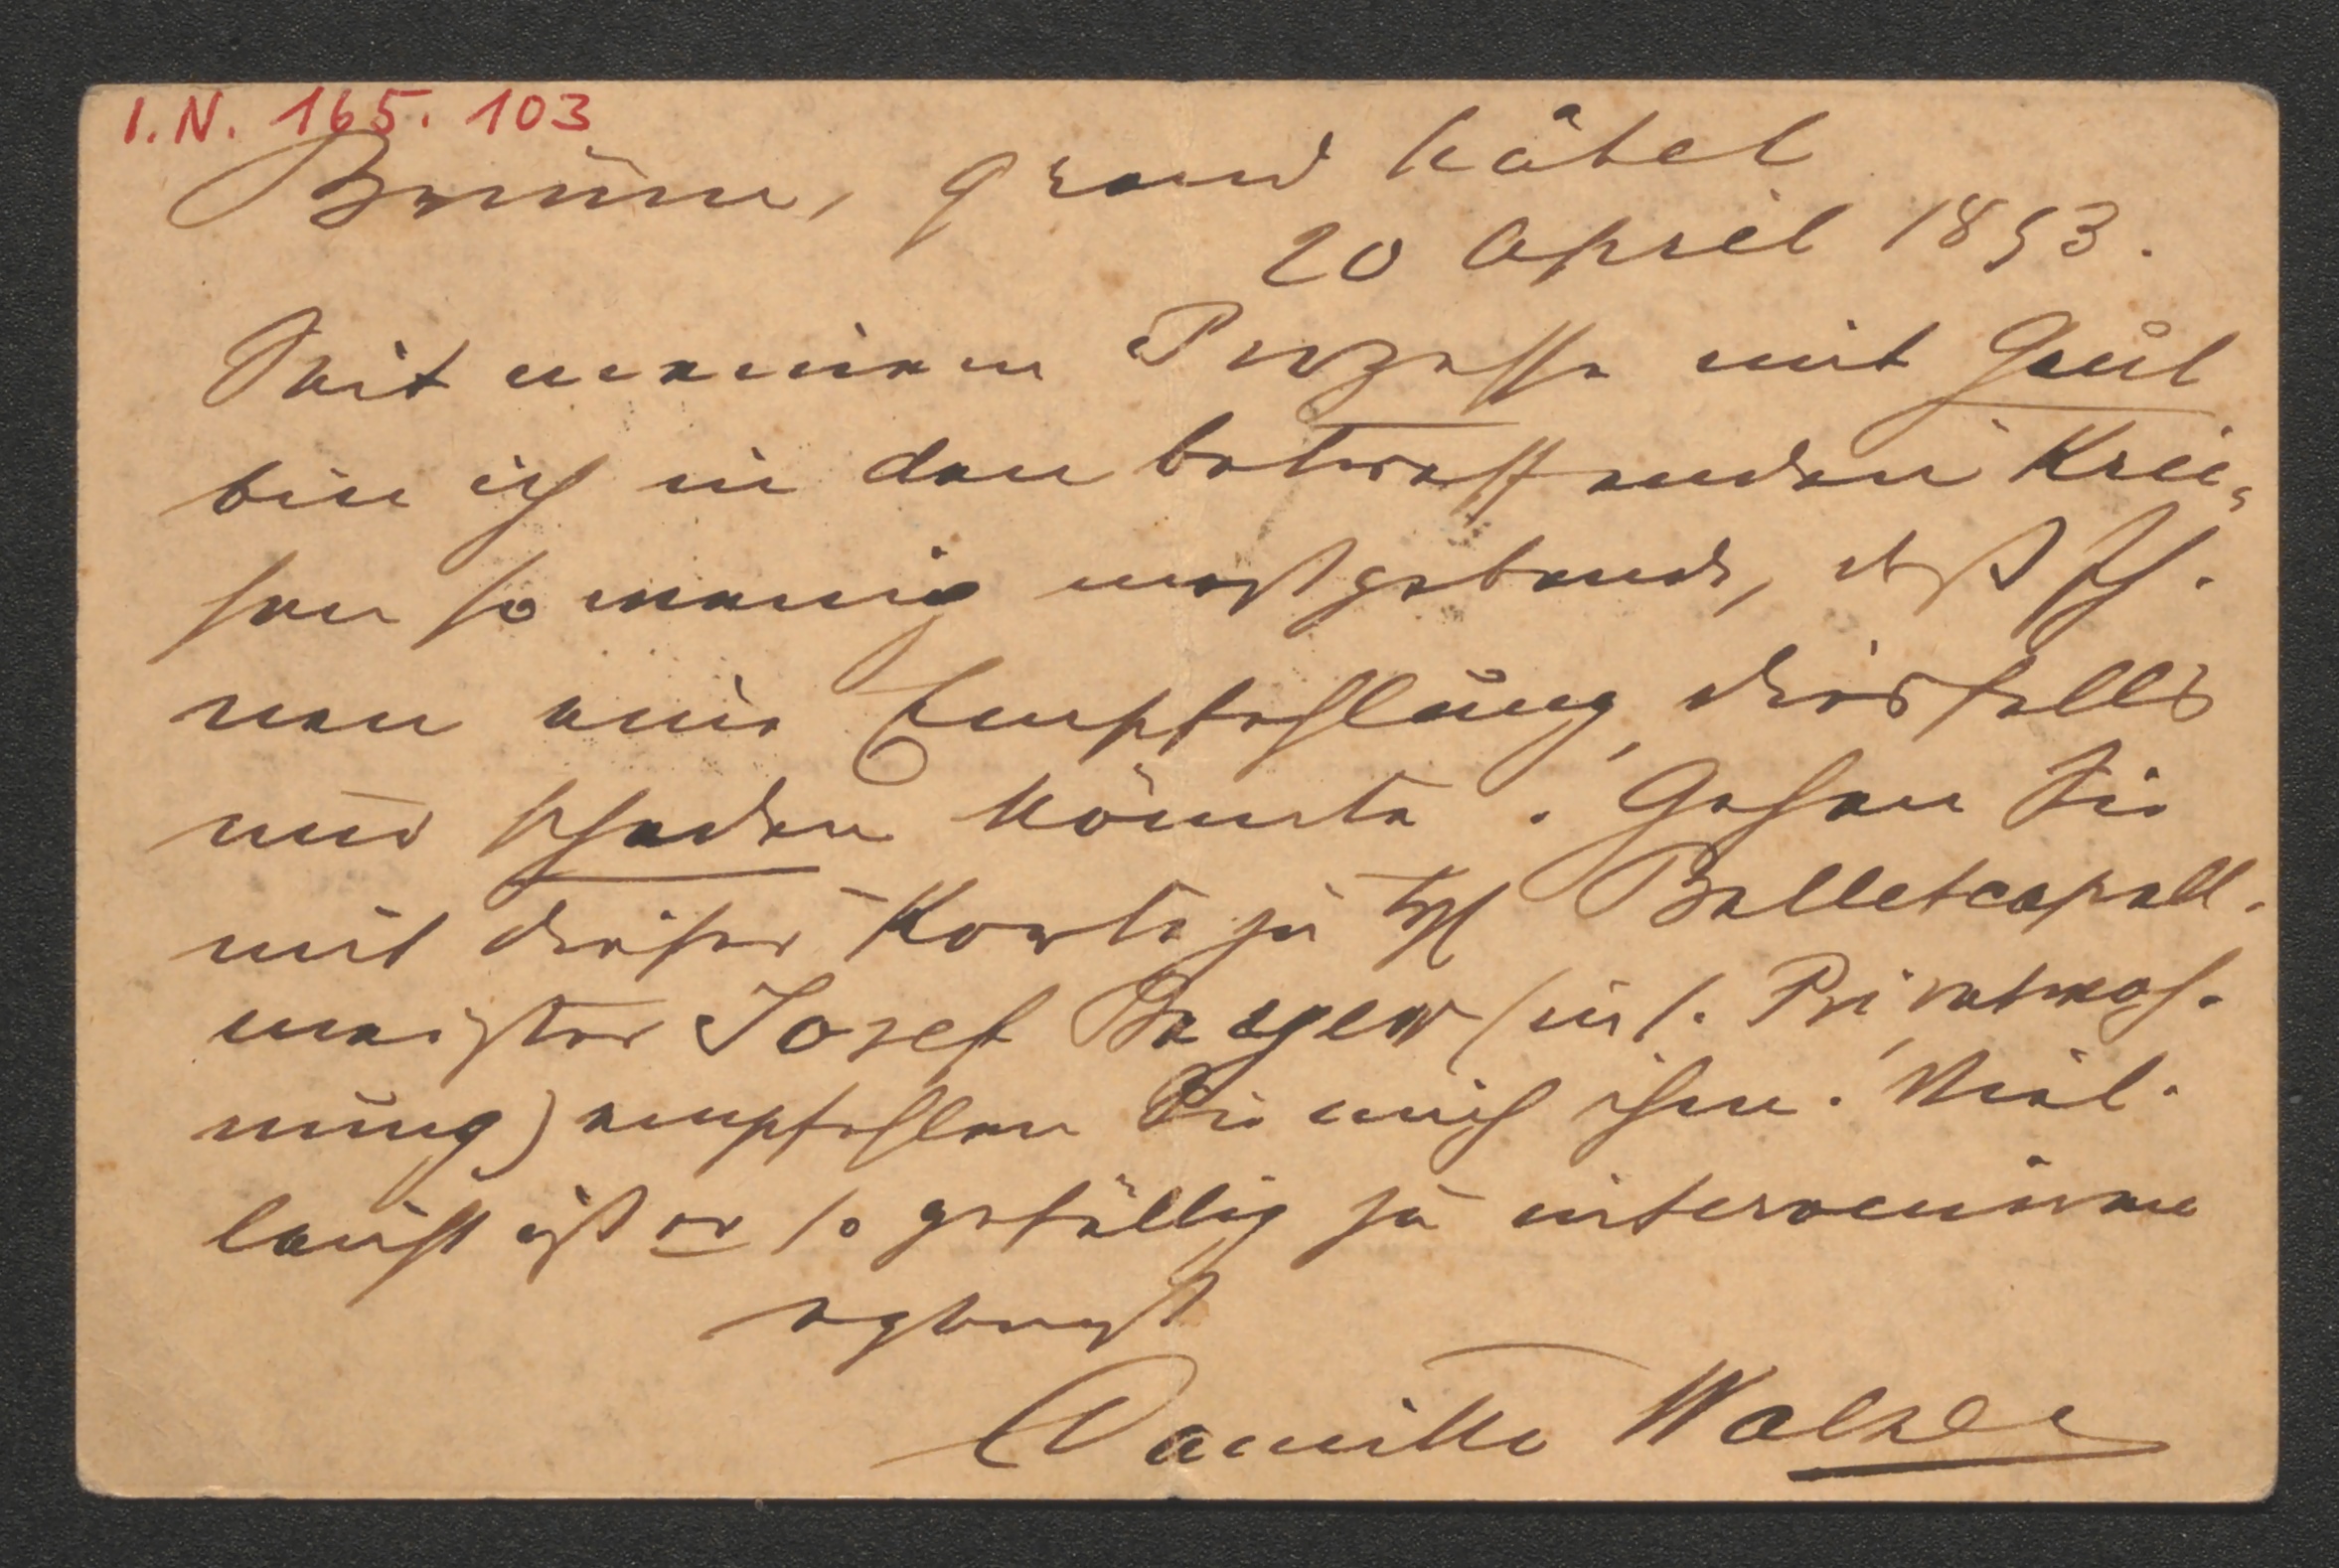 I.N. 165.103
Brünn, grand hôtel
20 April 1893.
Seit meinem Prozesse mit Gaul
bin ich in den betreffenden Krei-
sen so wenig maßgebend, daß Ih-
nen eine Empfehlung diesfalls
nur schaden könnte. Gehen Sie
mit dieser Karte zu Balletcapell-
meister Josef Bayer (in s. Privatwoh-
nung) empfehlen Sie mich ihm. Viel-
leicht ist er so gefällig zu interveniren
ergebenst
Camillo Walzel